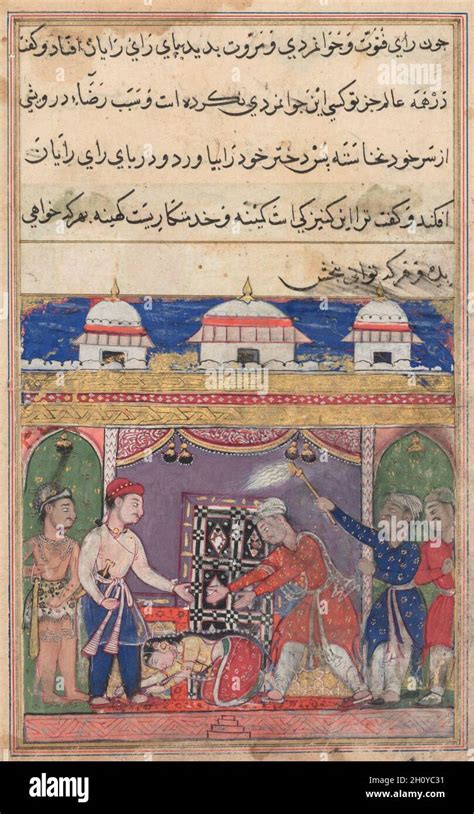 چون رای فتوت و جوانمردی و مروت بدید بپای رای رایان افتاد و گفت
در همه عالم جز تو کسی این جوانمردی نکرده است و سبب رضاء درویشی
از سر خود نخاسته پس دختر خود را بیاورد و در پای رای رایان
افکند و گفت ترا این کنیزکی است کمینه و خدمتکاریست کهینه بهر که خواهی
بده و هر که توانی ببخش
alamy
Image ID: 2H0YC31
www.alamy.com